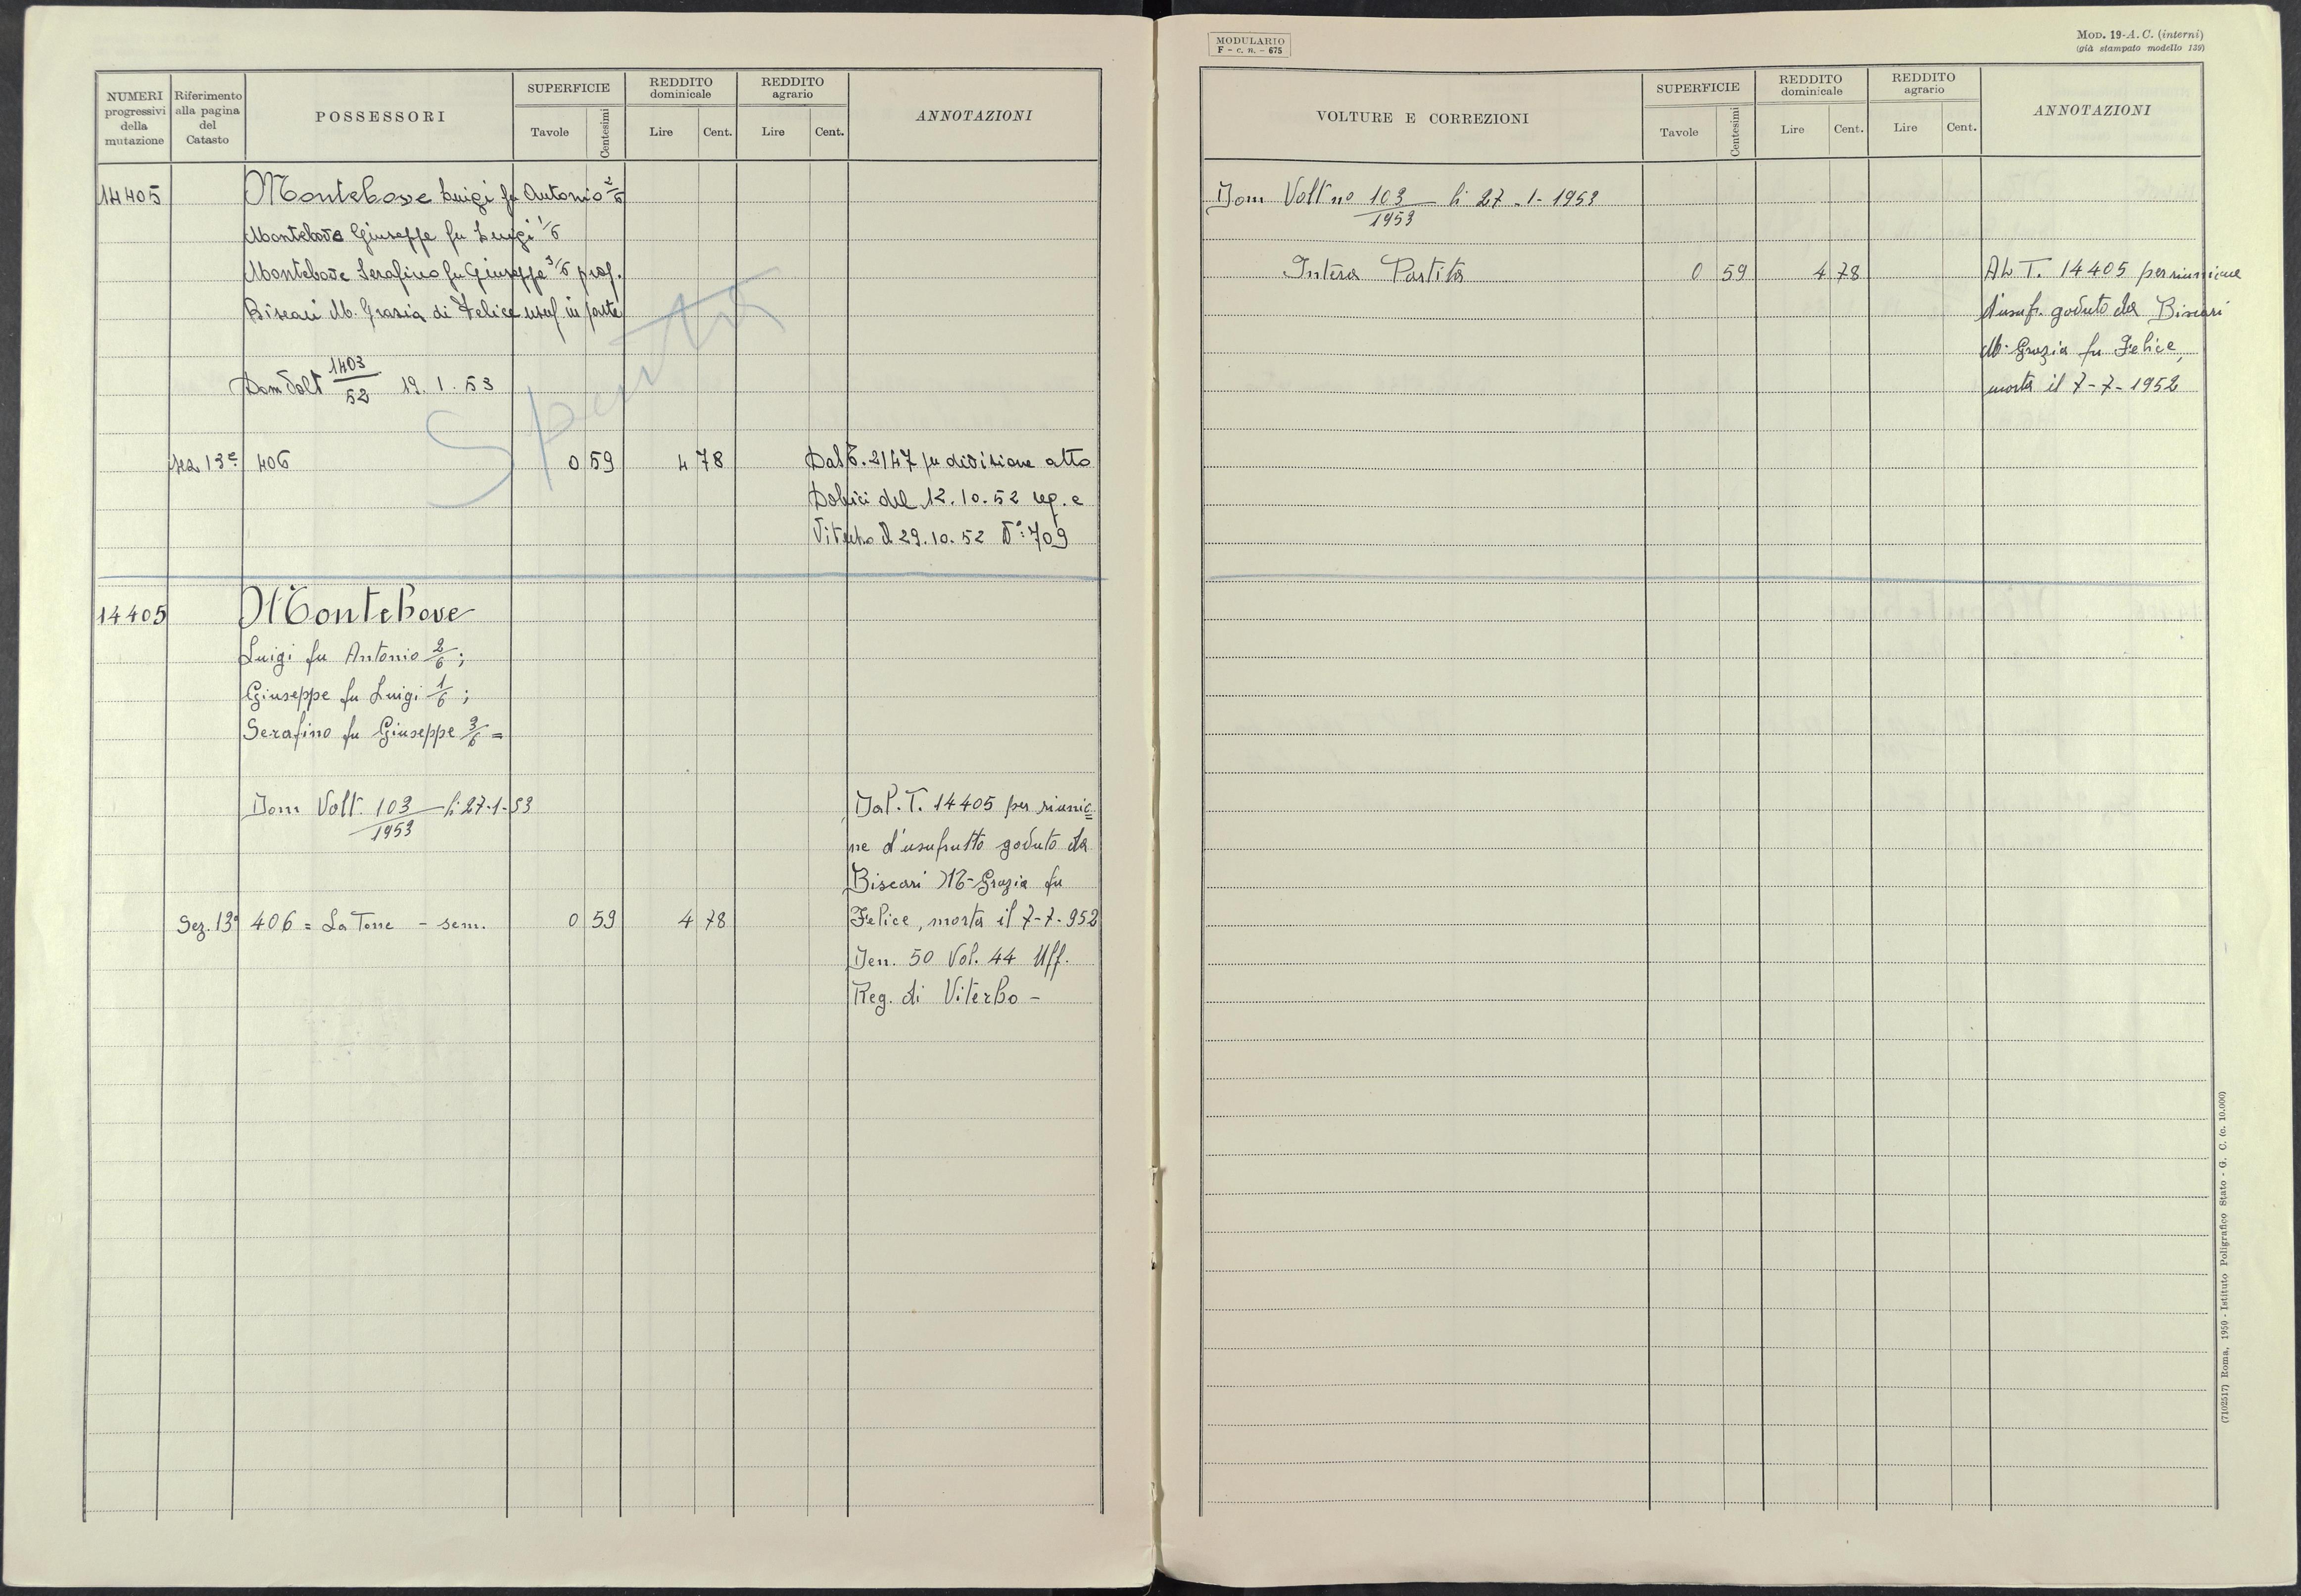 NUMERI
progressivi
della
mutazione
Riferimento
alla pagina
del
Catasto
POSSESSORI
SUPERFICIE
Tavole
Centesimi
REDDITO
dominicale
Lire
Cent.
REDDITO
agrario
Lire
Cent.
ANNOTAZIONI
14405
Montebove Luigi fu Antonio 2/6
Montebove Giuseppe fu Luigi 1/6
Montebove Serafino fu Giuseppe 3/6 prop.
Biscari M. Grazia di Felice usuf in parte
Dom Volt 1403/52 19.1.53
Spenta
Sez 13ª 406 0 59 4 78 Dal T. 2147 per divisione atto
Dobici del 12.10.52 reg. a
Viterbo il 29.10.52 N° 709
14405
Montebove
Luigi fu Antonio 2/6;
Giuseppe fu Luigi 1/6;
Serafino fu Giuseppe 3/6 =
Dom Volt. 103/1953 lì 27-1-53
Dal. T. 14405 per riunio=
ne d'usufrutto goduto da
Biscari M-Grazia fu
Sez. 13ª 406 = La Torre - sem. 0 59 4 78 Felice, morta il 7-7-952
Den. 50 Vol. 44 Uff.
Reg. di Viterbo -
MODULARIO
F - c. n. - 675
MOD. 19-A. C. (interni)
(già stampato modello 139)
VOLTURE E CORREZIONI
SUPERFICIE
Tavole
Centesimi
REDDITO
dominicale
Lire
Cent.
REDDITO
agrario
Lire
Cent.
ANNOTAZIONI
Dom Volt nº 103/1953 lì 27-1-1953
Intera Partita 0 59 4 78 Al T. 14405 per riunione
d'usuf. goduto da Biscari
M. Grazia fu Felice,
morta il 7-7-1952
(7102517) Roma, 1950 - Istituto Poligrafico Stato - G. C. (c. 10.000)